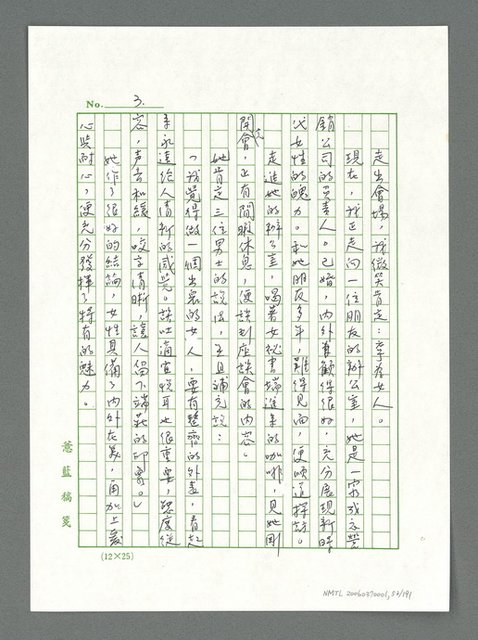 No. 3.
走出會場，我微笑肯定：幸為女人。
現在，我正走向一位朋友的辦公室，她是一家成衣營
銷公司的負責人。已婚，內外兼顧得很好，充分展現新時
代女性的魄力。和她朋友多年，難得見面，便順道探訪。
走進她的辦公室，喝著女祕書端進來的咖啡，見她剛
開完會，正有間暇休息，便談到座談會的內容。
她肯定三位男士的說法，並且補充說：
「我覺得做一個出眾的女人，要有整齊的外表，看起
來永遠給人清新的感覺。談吐適宜悅耳也很重要，態度從
容，声音和緩，咬字清晰，讓人留下端莊的印象。」
她作了很好的結論，女性具備了內外在美，再加上愛
心與耐心，便充分發揮了特有的魅力。
慧藍稿箋
(12×25)
NMTL 20060370001, 82/191